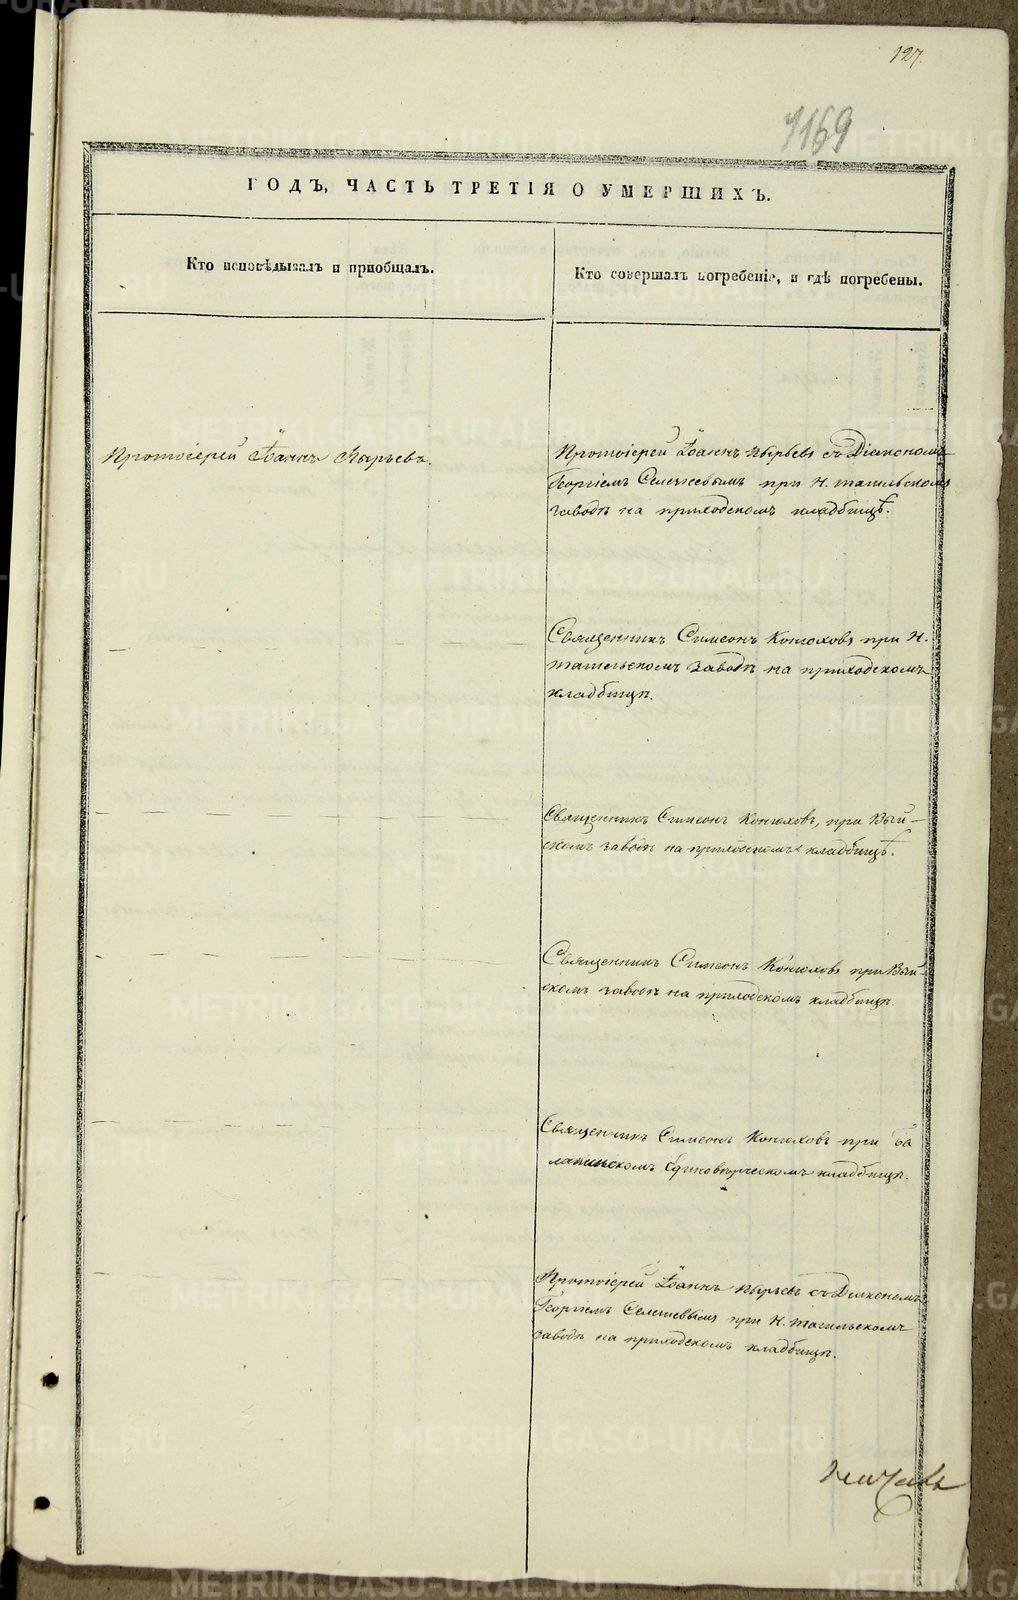 127.
1169
ГОДЪ, ЧАСТЬ ТРЕТІЯ О УМЕРШИХЪ.
Кто исповѣдывалъ и пріобщалъ.
Кто совершалъ погребеніе, и гдѣ погребены.
Протоіерей Іоаннъ Пырьевъ.
Протоіерей Іоаннъ Пырьевъ съ Діакономъ
Георгіемъ Селечевымъ при Н. тагильскомъ
заводѣ на приходскомъ кладбищѣ.
Священникъ Симеонъ Конюховъ при Н.
тагильскомъ заводѣ на приходскомъ
кладбищѣ.
Священникъ Симеонъ Конюховъ, при Вый-
скомъ заводѣ на приходскомъ кладбищѣ.
Священникъ Симеонъ Конюховъ при Вый-
скомъ заводѣ на приходскомъ кладбищѣ.
Священникъ Симеонъ Конюховъ при
Единовѣрческомъ кладбищѣ.
Протоіерей Іоаннъ Пырьевъ съ Діакономъ
Георгіемъ при Н. тагильскомъ
заводѣ на приходскомъ кладбищѣ.
METRIKI.GASO-URAL.RU